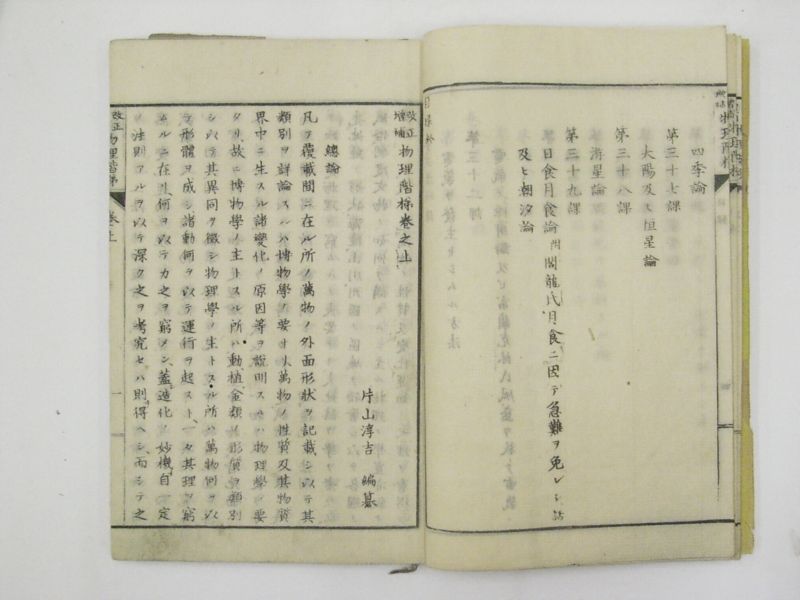 四季論
第三十七課
太陽及ヒ恒星論
第三十八課
海星論
第三十九課
日食月食論 閣龍氏月食ニ因テ急難ヲ免レシ話
及ヒ朝汐論
目録
改正増補 物理階梯卷之上
片山淳吉 編纂
總論
凡テ覆載間ニ在ル所ノ萬物ノ外面形狀ヲ記載シ以テ其
類別ヲ詳論スルハ博物學ノ要ナリ萬物ノ性質及其物質
界中ニ生スル諸變化ノ原因等ヲ說明スルハ物理學ノ要
タリ故ニ博物學ノ主トスル所ハ動植金類ノ形質ヲ類別
シ以テ其異同ヲ徵シ物理學ノ主トスル所ハ萬物何ヲ以
テ形體ヲ成シ諸動何ヲ以テ運行ヲ起スト一々其理ヲ窮
ムルニ在リ何ヲ以テカ之ヲ窮メン蓋造化ノ妙機自一定
ノ法則アルヲ以テ深ク之ヲ考究セハ則得ヘシ而シテ之
改正 物理階梯 卷之上 一